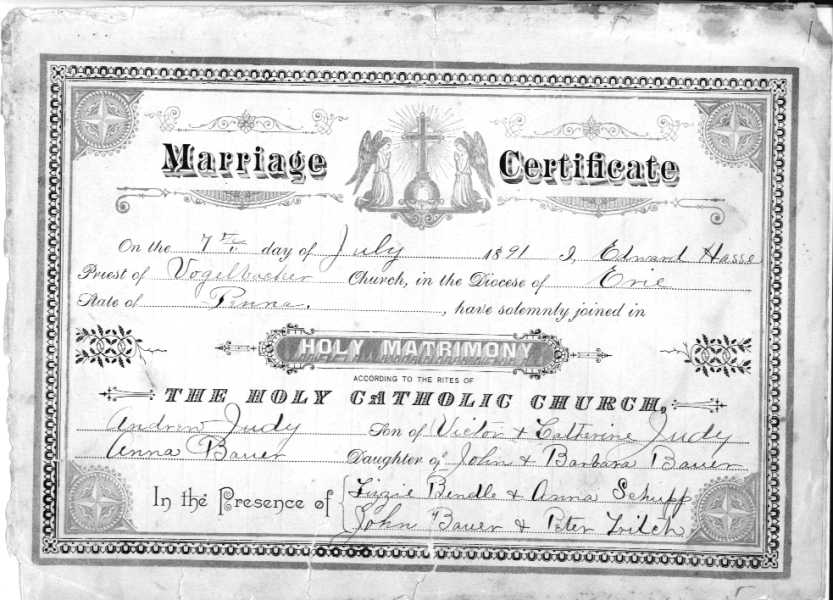 Marriage Certificate
On the 7th day of July 1891 I, Edward Hasse
Priest of Vogelbacher Church, in the Diocese of Erie
State of Penna. , have solemnly joined in
HOLY MATRIMONY
ACCORDING TO THE RITES OF
THE HOLY CATHOLIC CHURCH,
Andrew Judy Son of Victor & Catherine Judy
Anna Bauer Daughter of John & Barbara Bauer
In the Presence of { Lizzie Bindle & Anna Schupp
John Bauer & Peter Zilch